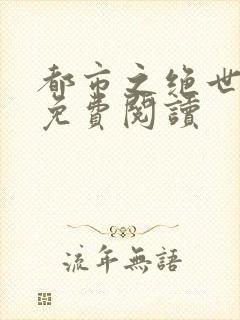 都市之絕世
免費閱讀
流年無語